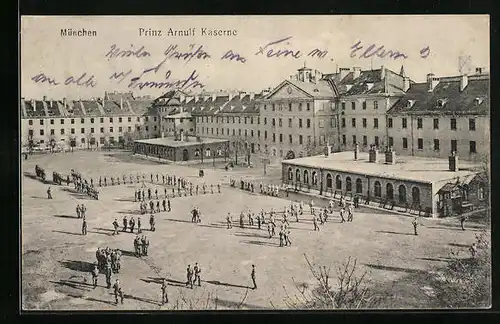 München Prinz Arnulf Kaserne
Viele Grüßen an Deine w. Eltern
an alle